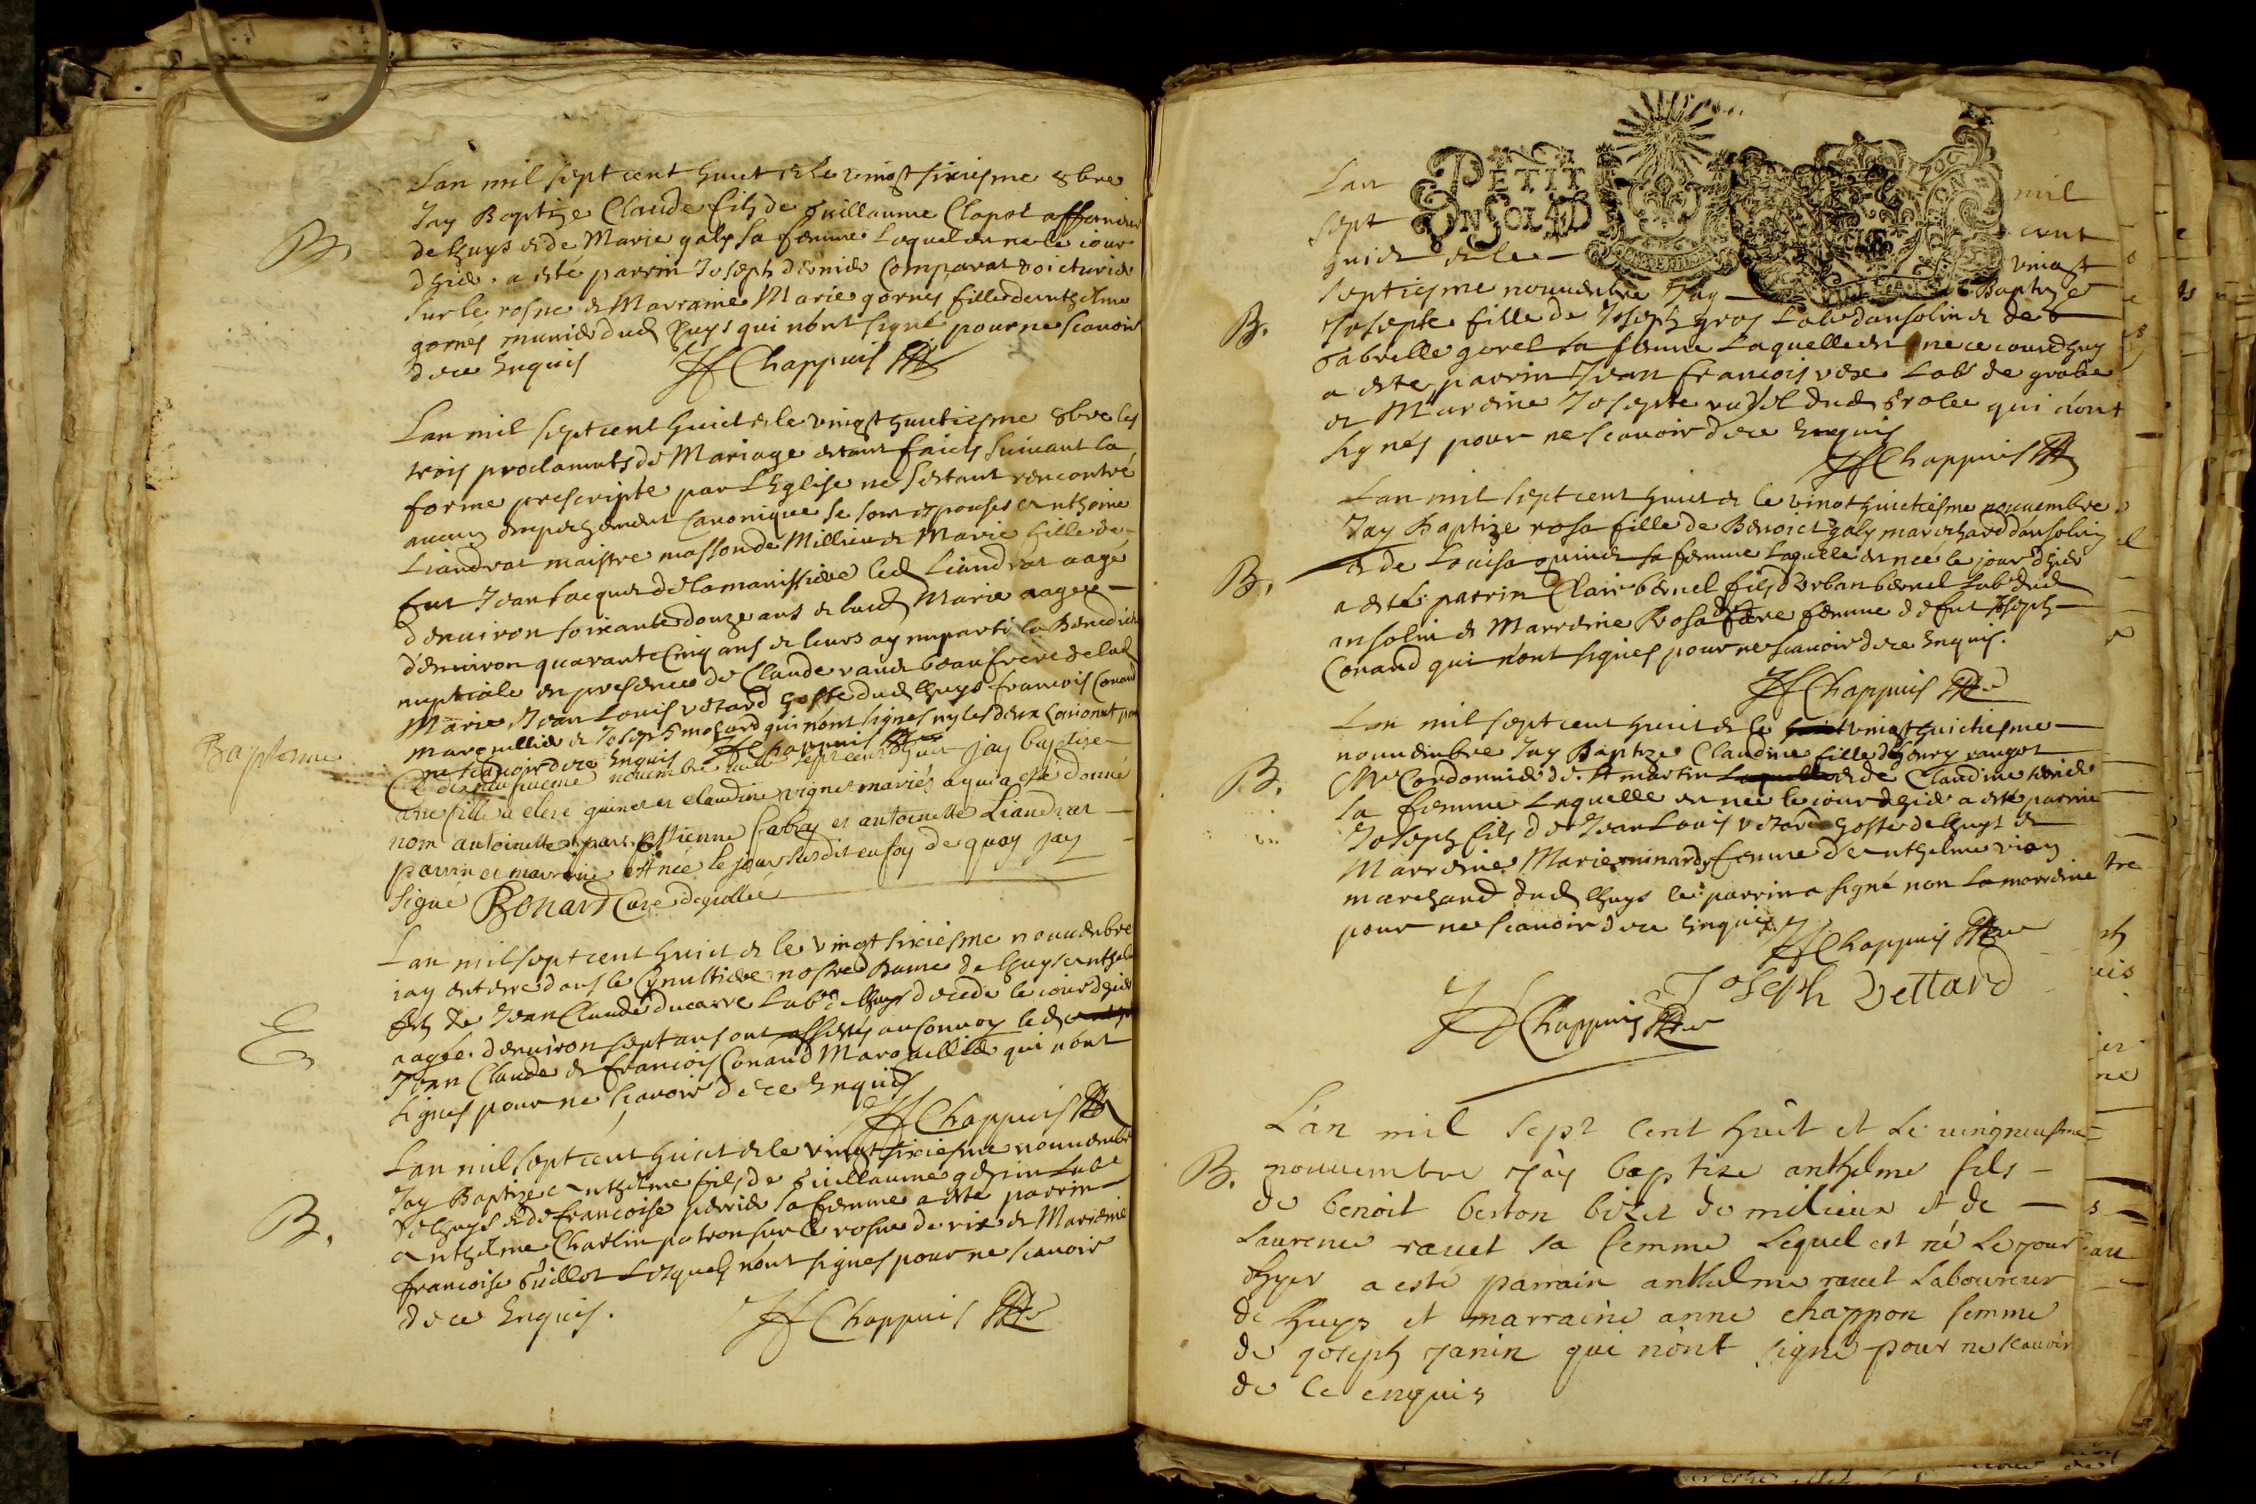 Lan mil sept cent huict et le vingt sixiesme 8bre
Jay Baptize Claude fils de Guillaume Clapot affaneur
B
de lhuys et de Marie galy sa femme Lequel est ne le jour
dhier. a esté parrin Joseph Comparat voicturier
sur le rosne et Marraine Marie gornes fille danthelme
gornes munier dud lhuys qui nont signé pour ne scavoir
de ce Enquis JF Chappuis
Lan mil sept cent huict et le vingt huictiesme 8bre les
trois proclamats de Mariage estant faicts suivant la
forme prescripte par LEglise ne sestant rencontré
aucun empechement Canonique se sont espousés anthoine
Liandrat maistre masson de Millieu et Marie fille de
fut Jean Jacques de lamanissiere led Liandrat aagé
denviron soixante douze ans et lad Marie aagee
denviron quarante Cinq ans et leurs ay imparti la Benediction
nuptiale en presence de Claude beaufrere de lad
Marie Jean Louis vetard hoste dud lhuys francois Conand
marguillier et Joseph qui nont signes ny les
ne scavoir de ce Enquis JF Chappuis
Baptesme
Ce novembre mille sept cent huit jay baptisé
une fille a clere guinet et claudine mariés a qui a esté donné
nom antoinette par Estienne et antoinette Liandrat
parrin et marrine et née le jour susdit en foy de quoy jay
signé Bonard Curé de grollée
Lan mil sept cent huict et le vingt sixiesme novembre
jay enterre dans le Cymultiere nostre Dame de lhuys
E
fils de Jean Claude ducarre Labr de lhuys decede le jour dhier
aagée denviron sept ans ont assistés au Convoy led
Jean Claude et francois Conand Marguillier qui nont
signes pour ne scavoir de ce Enquis
JF Chappuis
Lan mil sept cent huict et le vingt sixiesme novembre
Jay Baptize anthelme fils de Guillaume Labr
B.
de lhuys et de francoise perrier sa femme a esté parrin
anthelme Charlin patron sur le rosne de rix et Marrenie
francoise Guillot Lesquels nont signes pour ne scavoir
de ce Enquis. JF Chappuis
PETIT
ENSOLAD
Lan mil
sept cent
huict et le vingt
septiesme nouvembre Jay Baptize
B.
Josepte fille de Joseph gros Labr dansolin et de
Gabrielle gorel sa femme Laquelle est nee ce jourdhuy
a esté parrin Jean francois Labr de grolee
et Mareine Josepte dud Grolee qui nont
signés pour ne scavoir de ce Enquis
JF Chappuis
Lan mil sept cent huict et le vingt huictiesme nouvembre
Jay Baptize rosa fille de Benoict galy marchand dansolin
B.
et de Louisa sa femme Laquelle est née le jour dhier
a esté parrin Clair bernel fils dUrban bernel Labr dud
ansolin et Marreine Rosa femme de fut Joseph
Conand qui nont signes pour ne scavoir de ce Enquis.
JF Chappuis
Lan mil sept cent huict et le vingt huictiesme
nouvembre Jay Baptize Claudine fille dhenry
B.
Mre Cordonnier de St martin et de Claudine
sa femme Laquelle est née le jour dhier a esté parrin
Joseph fils de Jean Louis vetard hoste de lhuys et
Marreine Marie minard femme danthelme
marchand dud lhuys le parrin a signé non la marreine
pour ne scavoir de ce Enquise
JF Chappuis
Joseph Vettard
JF Chappuis
L'an mil sept Cent huit et Le vingneufme
B.
nouvembre J'ay baptize anthelme fils
de benoit berton bizet de milieu et de
Laurence ravet sa femme Lequel est né Le jour
dhyer a esté parrain anthelme ravet Laboureur
de Lhuys et marraine anne chappon femme
de joseph janin qui n'ont signé pour ne scavoir
de ce enquis